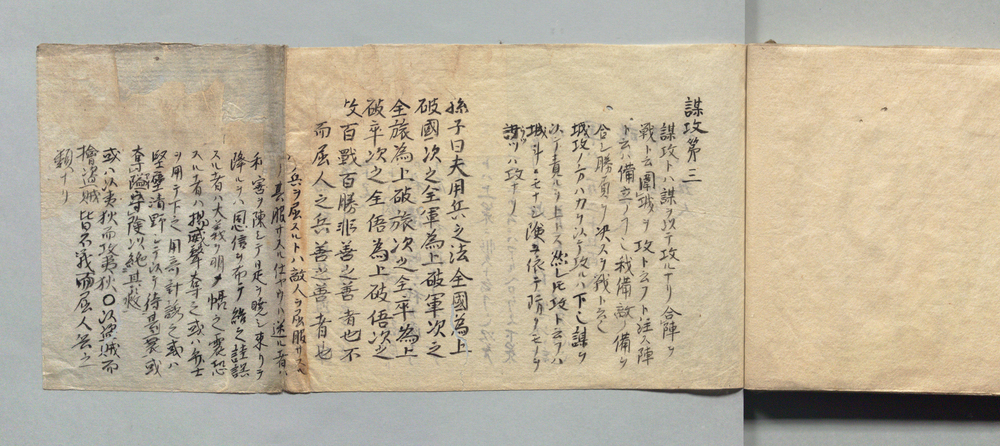 謀攻第三
謀攻トハ謀ヲ以テ攻ルナリ合陣ヲ
戦ト云圍城ヲ攻ト云フト注ス陣
トハ備立ノ我備敵ノ備ヲ
合シ勝負ヲ決スルヲ戦ト云
城攻ノ一ハ力ヲ以テ攻ルハ下謀ヲ
以テ責ルヲ上トス然レ此攻ト云フハ
城斗ニモナシ険ニ依テ防クモノヲ
謀ツハ攻ナリ
孫子曰夫用兵之法全國為上
破國次之全軍為上破軍次之
全旅為上破旅次之全卒為上
破卒次之全伍為上破伍次之
攻百戰百勝非善之善者也不
而屈人之兵善之善者也
兵ヲ屈スルトハ敵人ヲ屈服サスル
其服サスル仕ヤウハ送ル者ハ
和害ヲ陳シテ日是ヲ暁シ東リヲ
降ルヲハ恩信ヲ布テ結之詿誤
スル者ハ大義ヲ明メ悟之震恐
スル者ハ揚威聲奪之或ハ兵士
ヲ用テ下之用奇計誤之或ハ
堅壁清野シテ以テ待其裏或
奪隘守險以絶其救
或ハ以夷狄而攻夷狄〇以盗贼而
擒盗賊皆不戰而屈人兵之
類ナリ